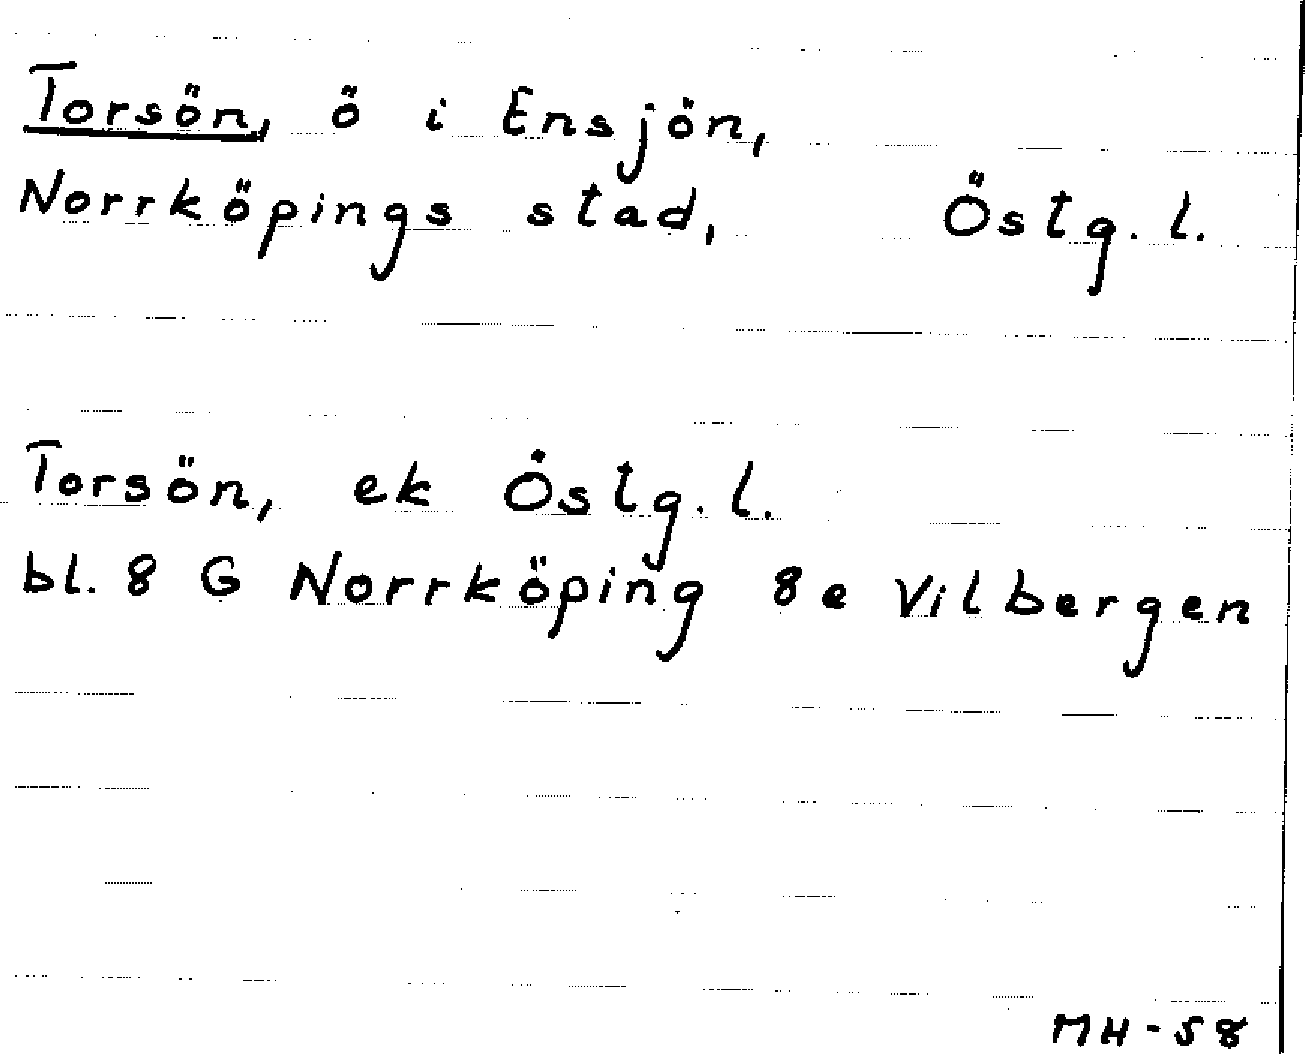 Torsön, ö i Ensjön,
Norrköpings stad, Östg. l.
Torsön, ek Östg. l.
bl. 8 G Norrköping 8e Vilbergen
MH-58